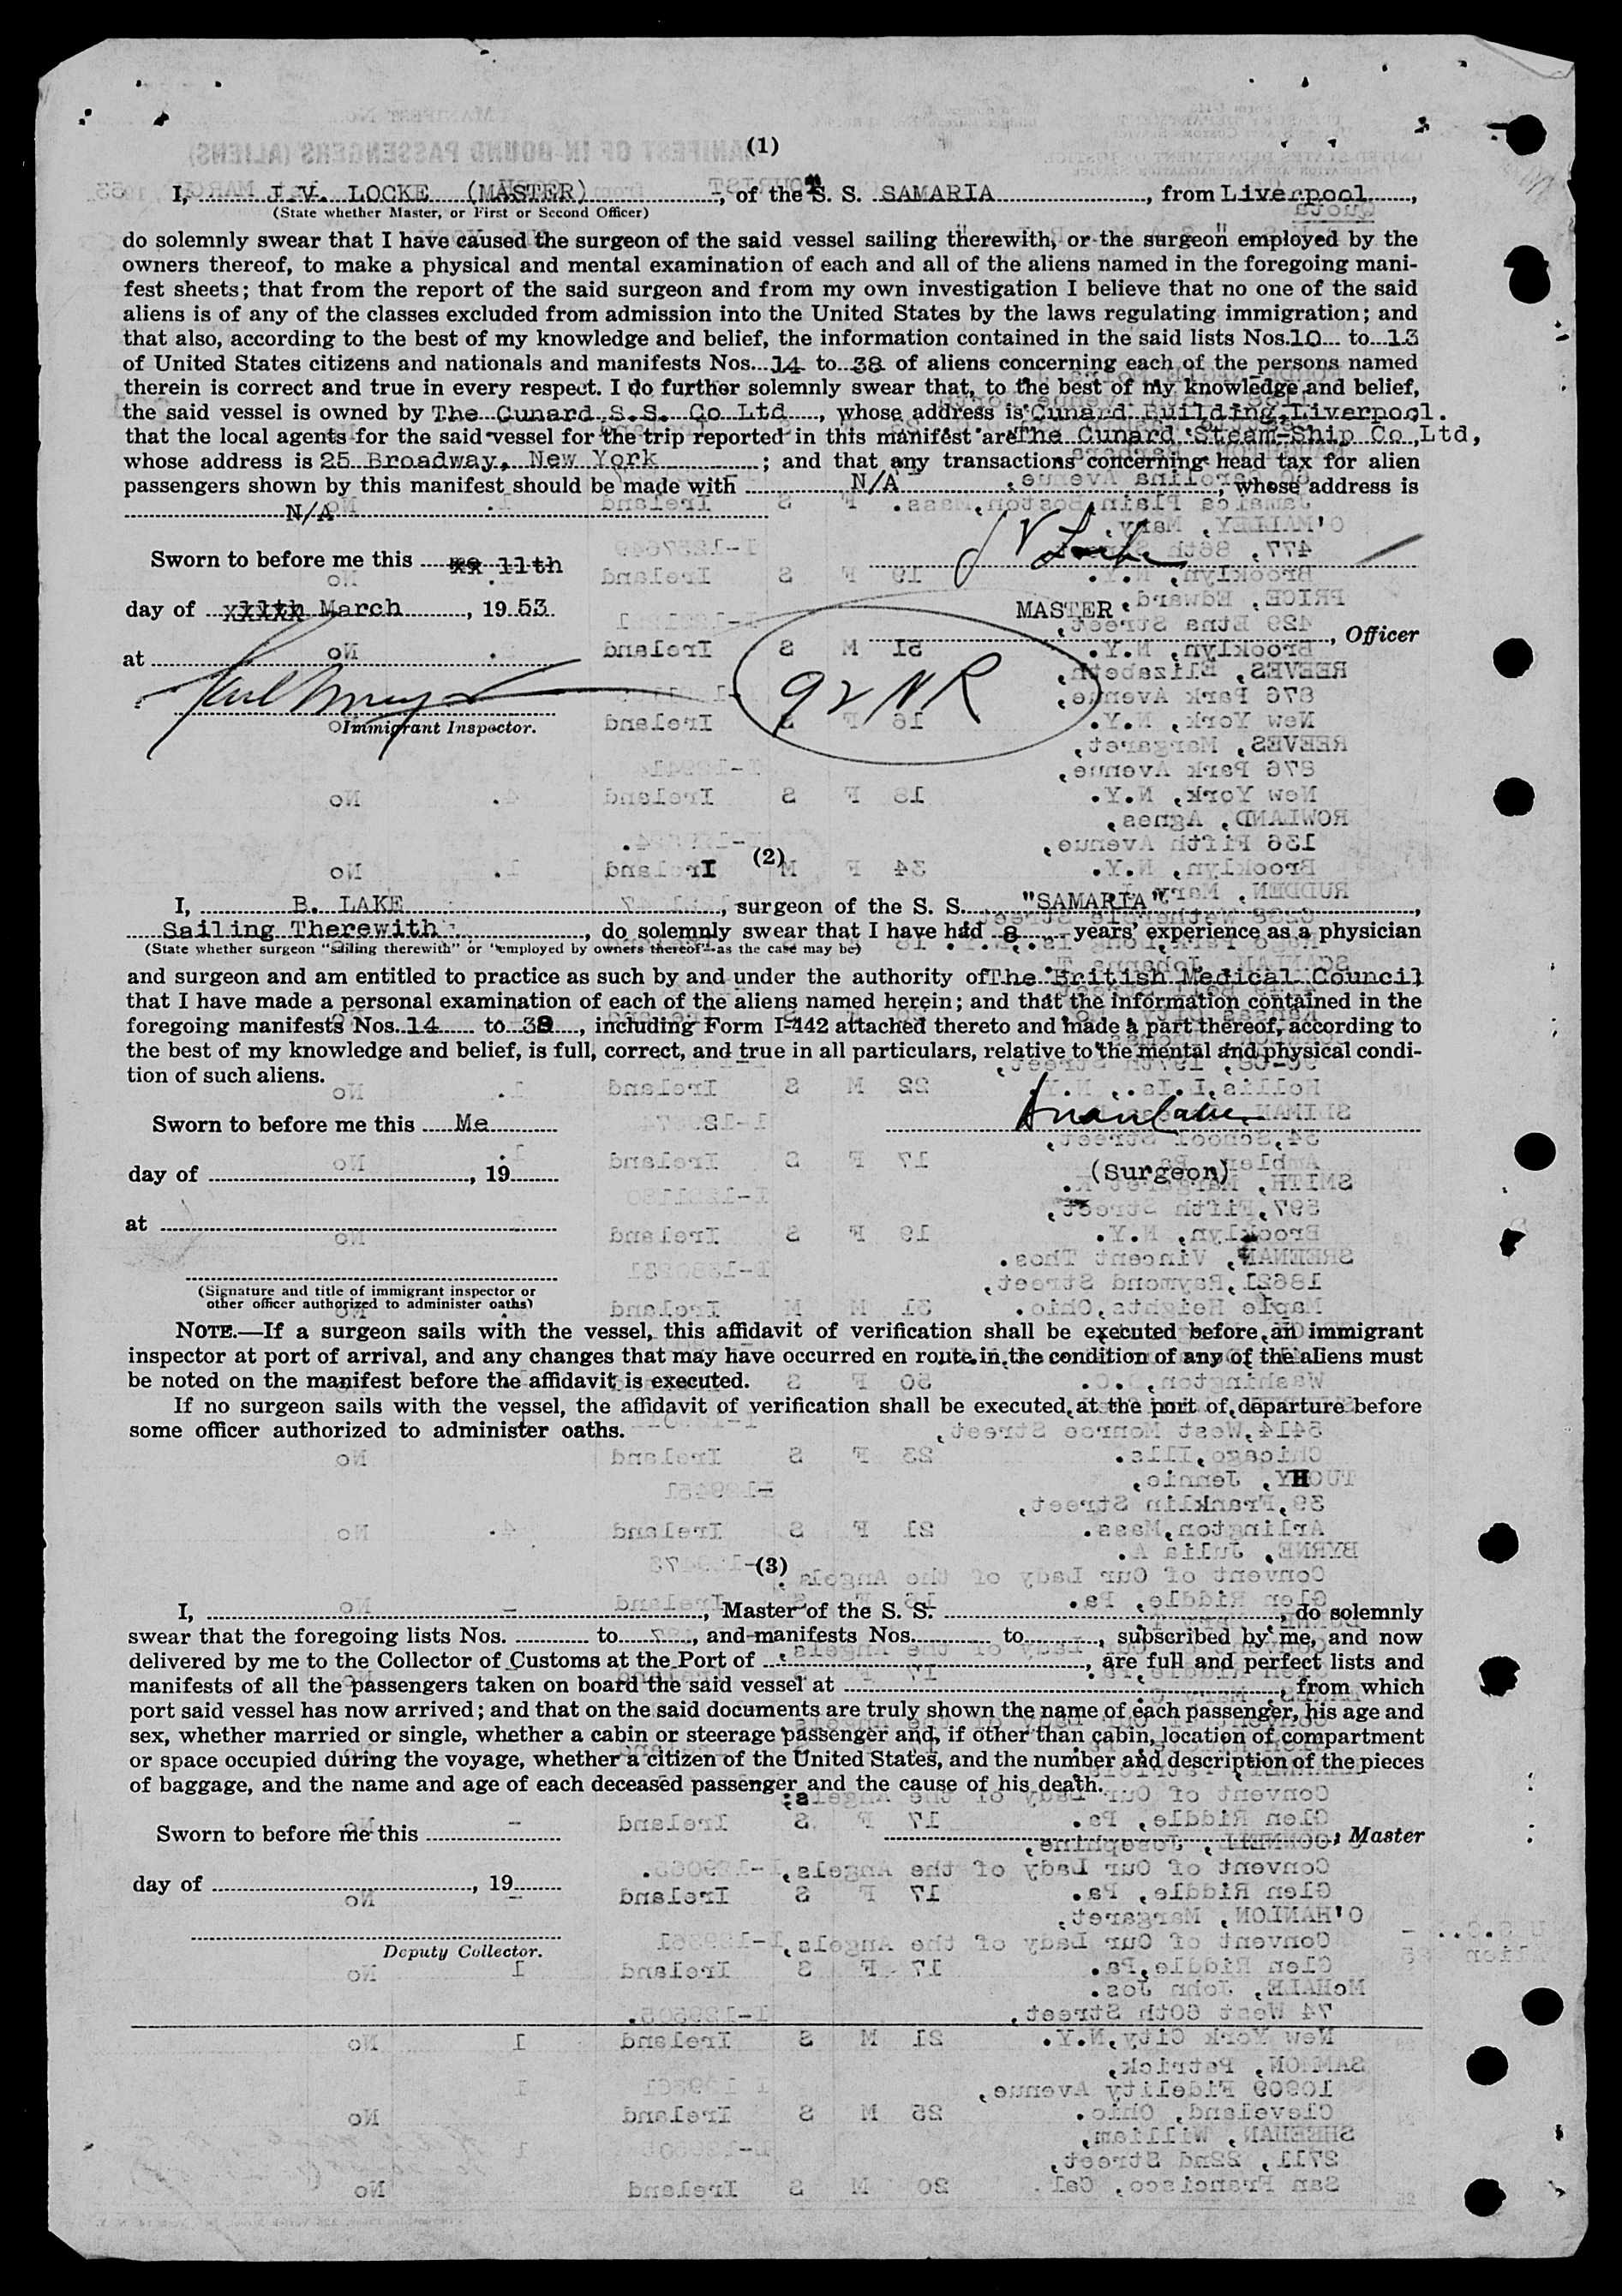 (1)
I, J.V. LOCKE (MASTER), of the S. S. SAMARIA, from Liverpool,
(State whether Master, or First or Second Officer)
do solemnly swear that I have caused the surgeon of the said vessel sailing therewith, or the surgeon employed by the
owners thereof, to make a physical and mental examination of each and all of the aliens named in the foregoing mani-
fest sheets; that from the report of the said surgeon and from my own investigation I believe that no one of the said
aliens is of any of the classes excluded from admission into the United States by the laws regulating immigration; and
that also, according to the best of my knowledge and belief, the information contained in the said lists Nos. 10 to 13
of United States citizens and nationals and manifests Nos. 14 to 38 of aliens concerning each of the persons named
therein is correct and true in every respect. I do further solemnly swear that, to the best of my knowledge and belief,
the said vessel is owned by The Cunard S.S. Co Ltd, whose address is Cunard Building, Liverpool.
that the local agents for the said vessel for the trip reported in this manifest are The Cunard Steam-Ship Co., Ltd,
whose address is 25 Broadway, New York; and that any transactions concerning head tax for alien
passengers shown by this manifest should be made with N/A, whose address is
N/A
Sworn to before me this 11th
J V Locke
day of March, 1953
MASTER
, Officer
at
92 NR
Immigrant Inspector.
(2)
I, B. LAKE, surgeon of the S. S. "SAMARIA",
Sailing Therewith, do solemnly swear that I have had 8 years' experience as a physician
(State whether surgeon "sailing therewith" or "employed by owners thereof" as the case may be)
and surgeon and am entitled to practice as such by and under the authority of The British Medical Council
that I have made a personal examination of each of the aliens named herein; and that the information contained in the
foregoing manifests Nos. 14 to 38, including Form I-442 attached thereto and made a part thereof, according to
the best of my knowledge and belief, is full, correct, and true in all particulars, relative to the mental and physical condi-
tion of such aliens.
Sworn to before me this Me
day of , 19
(Surgeon)
at
(Signature and title of immigrant inspector or
other officer authorized to administer oaths)
NOTE.—If a surgeon sails with the vessel, this affidavit of verification shall be executed before an immigrant
inspector at port of arrival, and any changes that may have occurred en route in the condition of any of the aliens must
be noted on the manifest before the affidavit is executed.
If no surgeon sails with the vessel, the affidavit of verification shall be executed at the port of departure before
some officer authorized to administer oaths.
(3)
I, , Master of the S. S. , do solemnly
swear that the foregoing lists Nos. to , and manifests Nos. to , subscribed by me, and now
delivered by me to the Collector of Customs at the Port of , are full and perfect lists and
manifests of all the passengers taken on board the said vessel at , from which
port said vessel has now arrived; and that on the said documents are truly shown the name of each passenger, his age and
sex, whether married or single, whether a cabin or steerage passenger and, if other than cabin, location of compartment
or space occupied during the voyage, whether a citizen of the United States, and the number and description of the pieces
of baggage, and the name and age of each deceased passenger and the cause of his death.
Sworn to before me this
, Master
day of , 19
Deputy Collector.